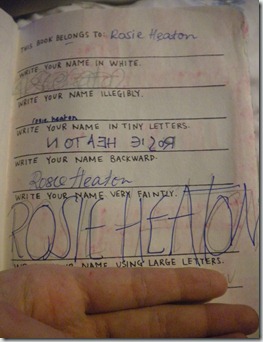 THIS BOOK BELONGS TO: Rosie Heaton
WRITE YOUR NAME IN WHITE.
WRITE YOUR NAME ILLEGIBLY.
rosie heaton
WRITE YOUR NAME IN TINY LETTERS.
ИOTAƎH ƎIƧOЯ
WRITE YOUR NAME BACKWARD.
Rosie Heaton
WRITE YOUR NAME VERY FAINTLY.
ROSIE HEATON
YOUR NAME USING LARGE LETTERS.